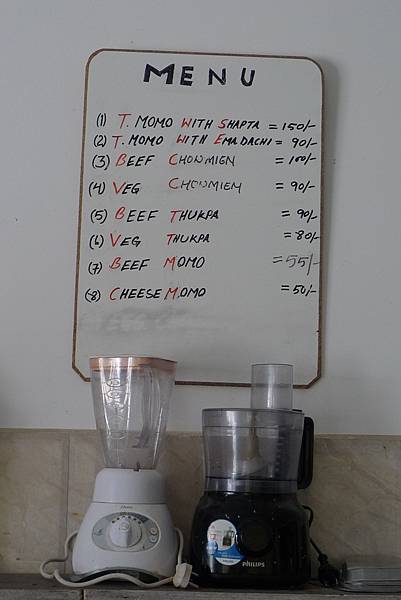 MENU
(1) T. MOMO WITH SHAPTA = 150/-
(2) T. MOMO WITH EMADACHI = 90/-
(3) BEEF CHOWMIEN = 100/-
(4) VEG CHOWMIEN = 90/-
(5) BEEF THUKPA = 90/-
(6) VEG THUKPA = 80/-
(7) BEEF MOMO = 55/-
(8) CHEESE MOMO = 50/-
PHILIPS